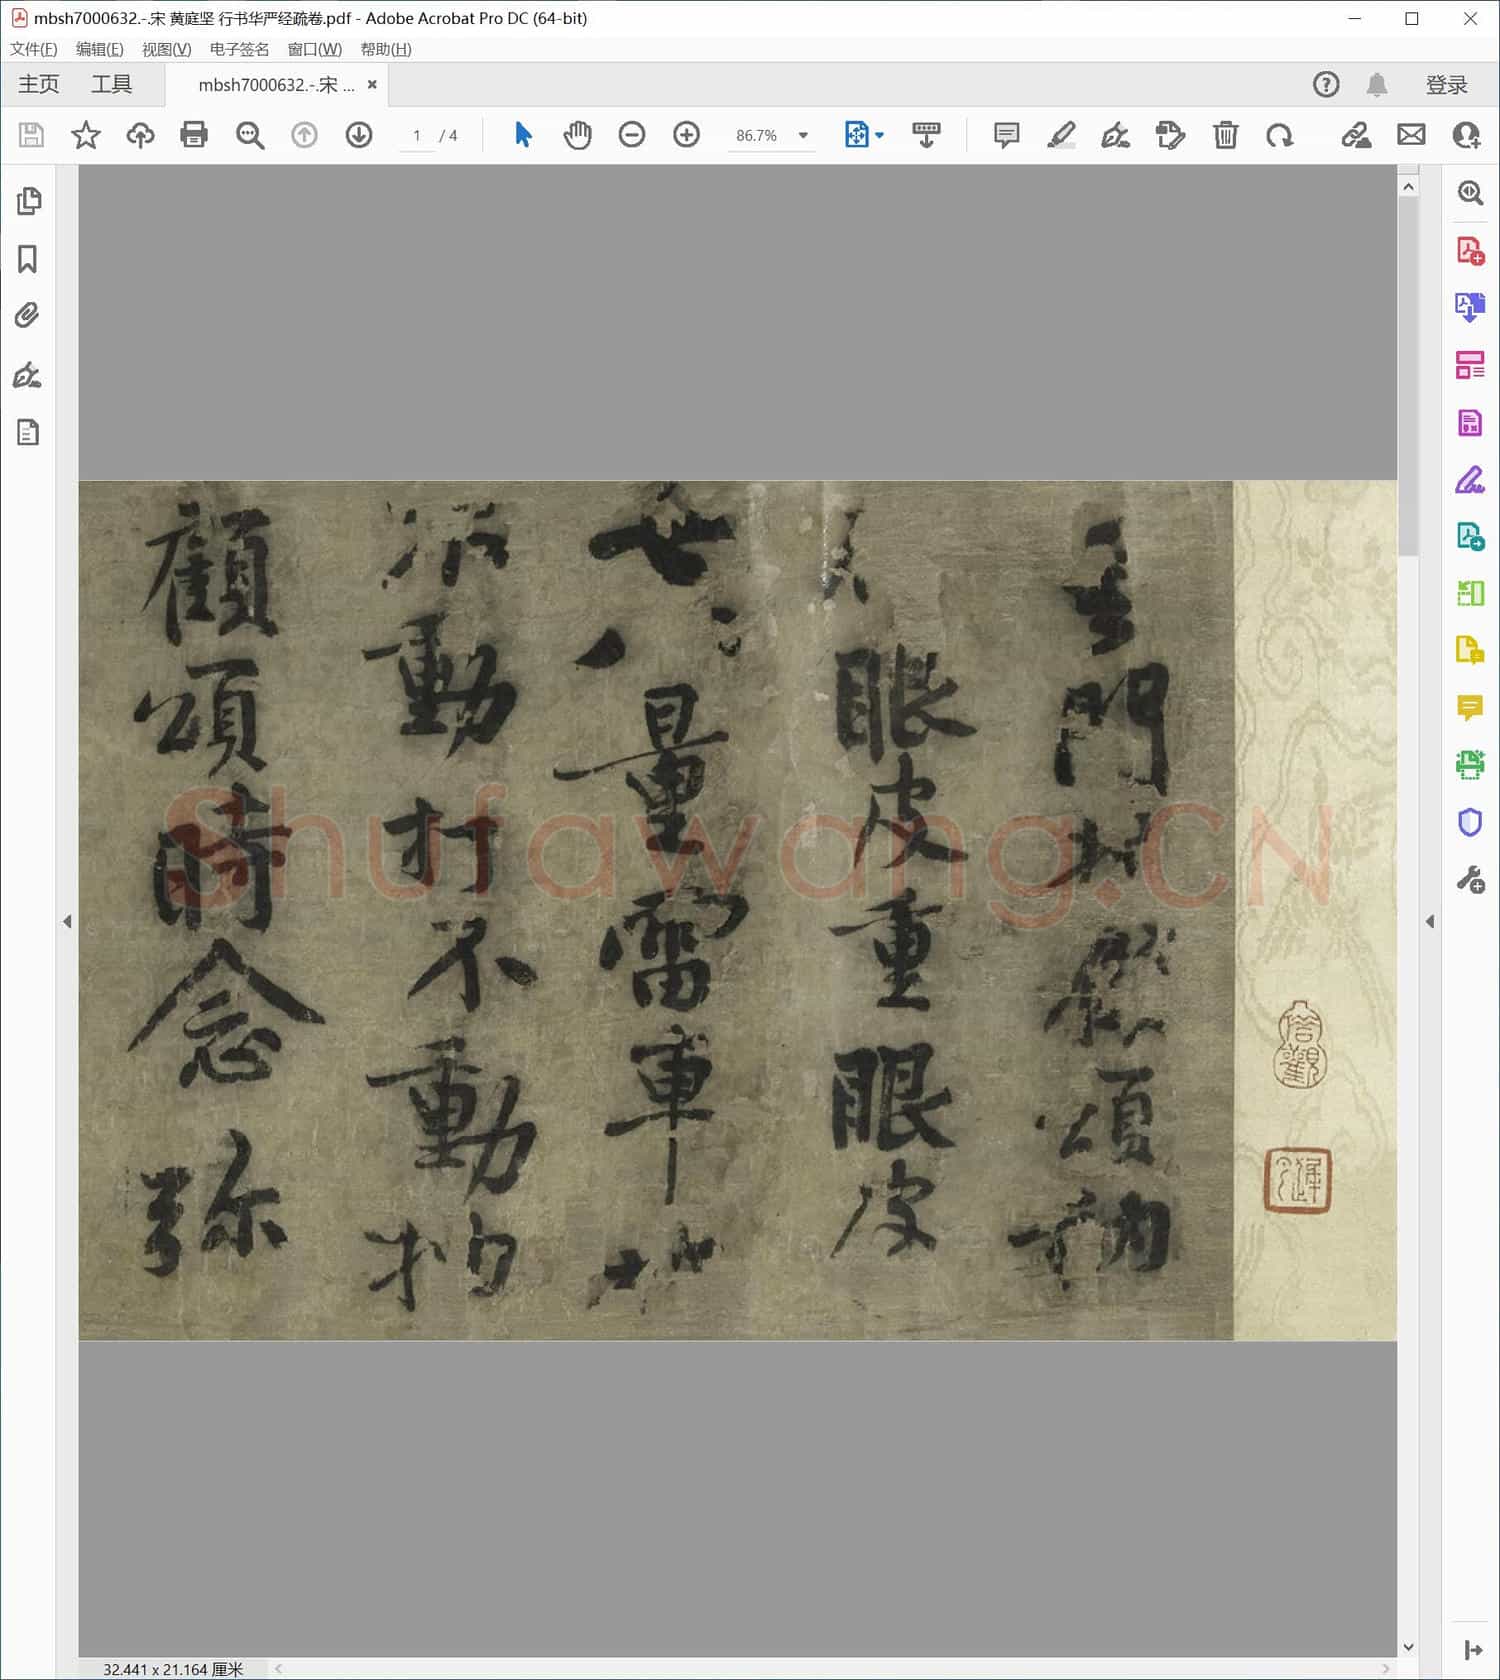 mbsh7000632.-.宋 黄庭坚 行书华严经疏卷.pdf - Adobe Acrobat Pro DC (64-bit)
文件(F) 编辑(E) 视图(V) 电子签名 窗口(W) 帮助(H)
主页 工具 mbsh7000632.-.宋 ... 登录
1 / 4 86.7%
門 頌
眼皮重眼皮
世 量雷車
動打不動
顧頌時念弥
Shufawang.CN
信觀
32.441 x 21.164 厘米